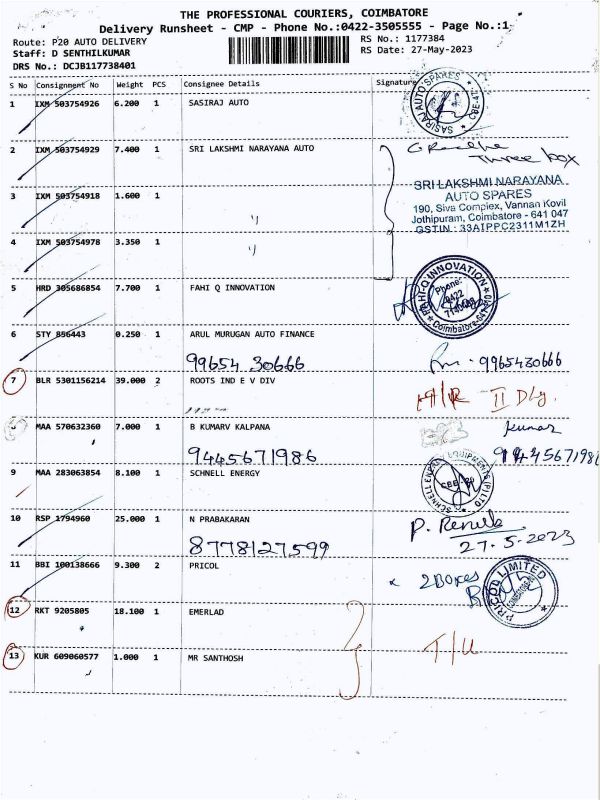 THE PROFESSIONAL COURIERS, COIMBATORE
Delivery Runsheet - CMP - Phone No.:0422-3505555 - Page No.:1
Route: P20 AUTO DELIVERY
RS No.: 1177384
Staff: D SENTHILKUMAR
RS Date: 27-May-2023
DRS No.: DCJB117738401
S No Consignment No Weight PCS Consignee Details Signature
1 IXM 503754926 6.200 1 SASIRAJ AUTO
SASIRAJ AUTO SPARES CBE-47
2 IXM 503754929 7.400 1 SRI LAKSHMI NARAYANA AUTO
Three box
3 IXM 503754918 1.600 1 "
SRI LAKSHMI NARAYANA
AUTO SPARES
190, Siva Complex, Vannan Kovil
Jothipuram, Coimbatore - 641 047
GSTIN : 33AIPPC2311M1ZH
4 IXM 503754978 3.350 1 "
5 HRD 305686854 7.700 1 FAHI Q INNOVATION
FAHI-Q INNOVATION
Phone:
0422
Coimbatore
6 STY 856443 0.250 1 ARUL MURUGAN AUTO FINANCE
99654 30666
9965430666
7 BLR 5301156214 39.000 2 ROOTS IND E V DIV
II Dly.
8 MAA 570632360 7.000 1 B KUMARV KALPANA
Kumar
9445671986
9445671986
9 MAA 283063854 8.100 1 SCHNELL ENERGY
SCHNELL ENERGY EQUIPMENTS (P) LTD
10 RSP 1794960 25.000 1 N PRABAKARAN
P. Renuka
8778127599
27.5.2023
11 BBI 100138666 9.300 2 PRICOL
2 Boxes
PRICOL LIMITED
12 RKT 9205805 18.100 1 EMERLAD
T/U
13 KUR 609060577 1.000 1 MR SANTHOSH